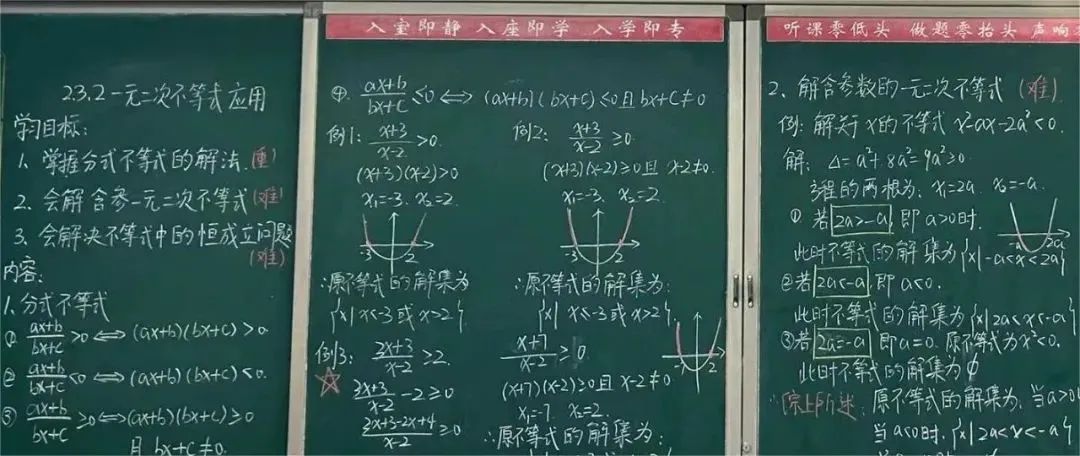 2.3.2 一元二次不等式应用
学习目标:
1. 掌握分式不等式的解法.(重)
2. 会解含参一元二次不等式(难)
3. 会解决不等式中的恒成立问题
(难)
内容:
1. 分式不等式
① (ax+b)/(bx+c) >0 ⟺ (ax+b)(bx+c)>0
② (ax+b)/(bx+c) <0 ⟺ (ax+b)(bx+c)<0.
③ (ax+b)/(bx+c) ≥0 ⟺ (ax+b)(bx+c)≥0
且 bx+c≠0.
入室即静 入座即学 入学即专
④. (ax+b)/(bx+c) ≤0 ⟺ (ax+b)(bx+c)≤0且bx+c≠0
例1: (x+3)/(x-2) >0.
(x+3)(x-2)>0
x₁=-3. x₂=2.
-3 2
∴原不等式的解集为
{x|x<-3或x>2}.
例2: (x+3)/(x-2) ≥0.
(x+3)(x-2)≥0且 x-2≠0.
x₁=-3. x₂=2.
-3 2
∴原不等式的解集为:
{x|x≤-3或x>2}.
例3: (3x+3)/(x-2) ≥2.
☆ (3x+3)/(x-2) -2≥0
(3x+3-2x+4)/(x-2) ≥0.
(x+7)/(x-2) ≥0
(x+7)(x-2)≥0且x-2≠0.
x₁=-7. x₂=2.
-7 2
∴原不等式的解集为:
听课零低头 做题零抬头 声响
2、解含参数的一元二次不等式 (难)
例: 解关于x的不等式 x²-ax-2a²<0.
解: Δ=a²+8a²=9a²≥0.
方程的两根为: x₁=2a. x₂=-a.
① 若2a>-a, 即 a>0时.
-a 2a
此时不等式的解集为{x|-a<x<2a}
②若2a<-a, 即a<0.
此时不等式的解集为{x|2a<x<-a}
③若2a=-a 即a=0. 原不等式为x²<0.
此时不等式的解集为∅
∴综上所述: 原不等式的解集为: 当a>0
当a<0时. {x|2a<x<-a}